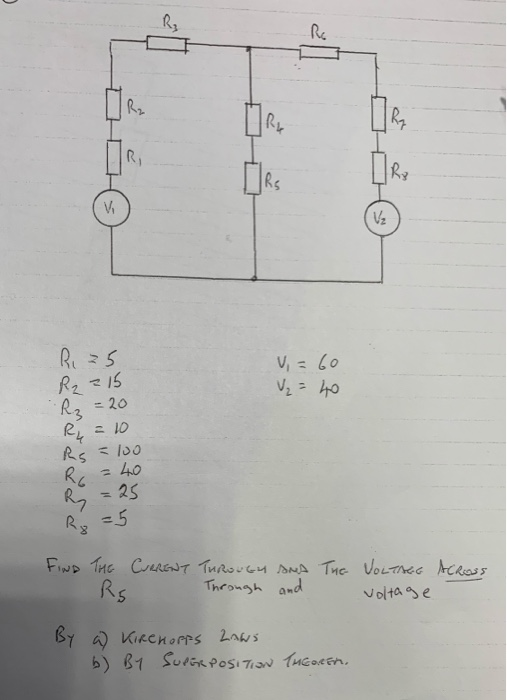 R3
R6
R2
R4
R7
R1
R5
R8
V1
V2
R1 = 5
V1 = 60
R2 = 15
V2 = 40
R3 = 20
R4 = 10
R5 = 100
R6 = 40
R7 = 25
R8 = 5
FIND THE CURRENT THROUGH AND THE VOLTAGE ACROSS
R5 Through and voltage
BY a) KIRCHOFFS LAWS
b) BY SUPERPOSITION THEOREM.